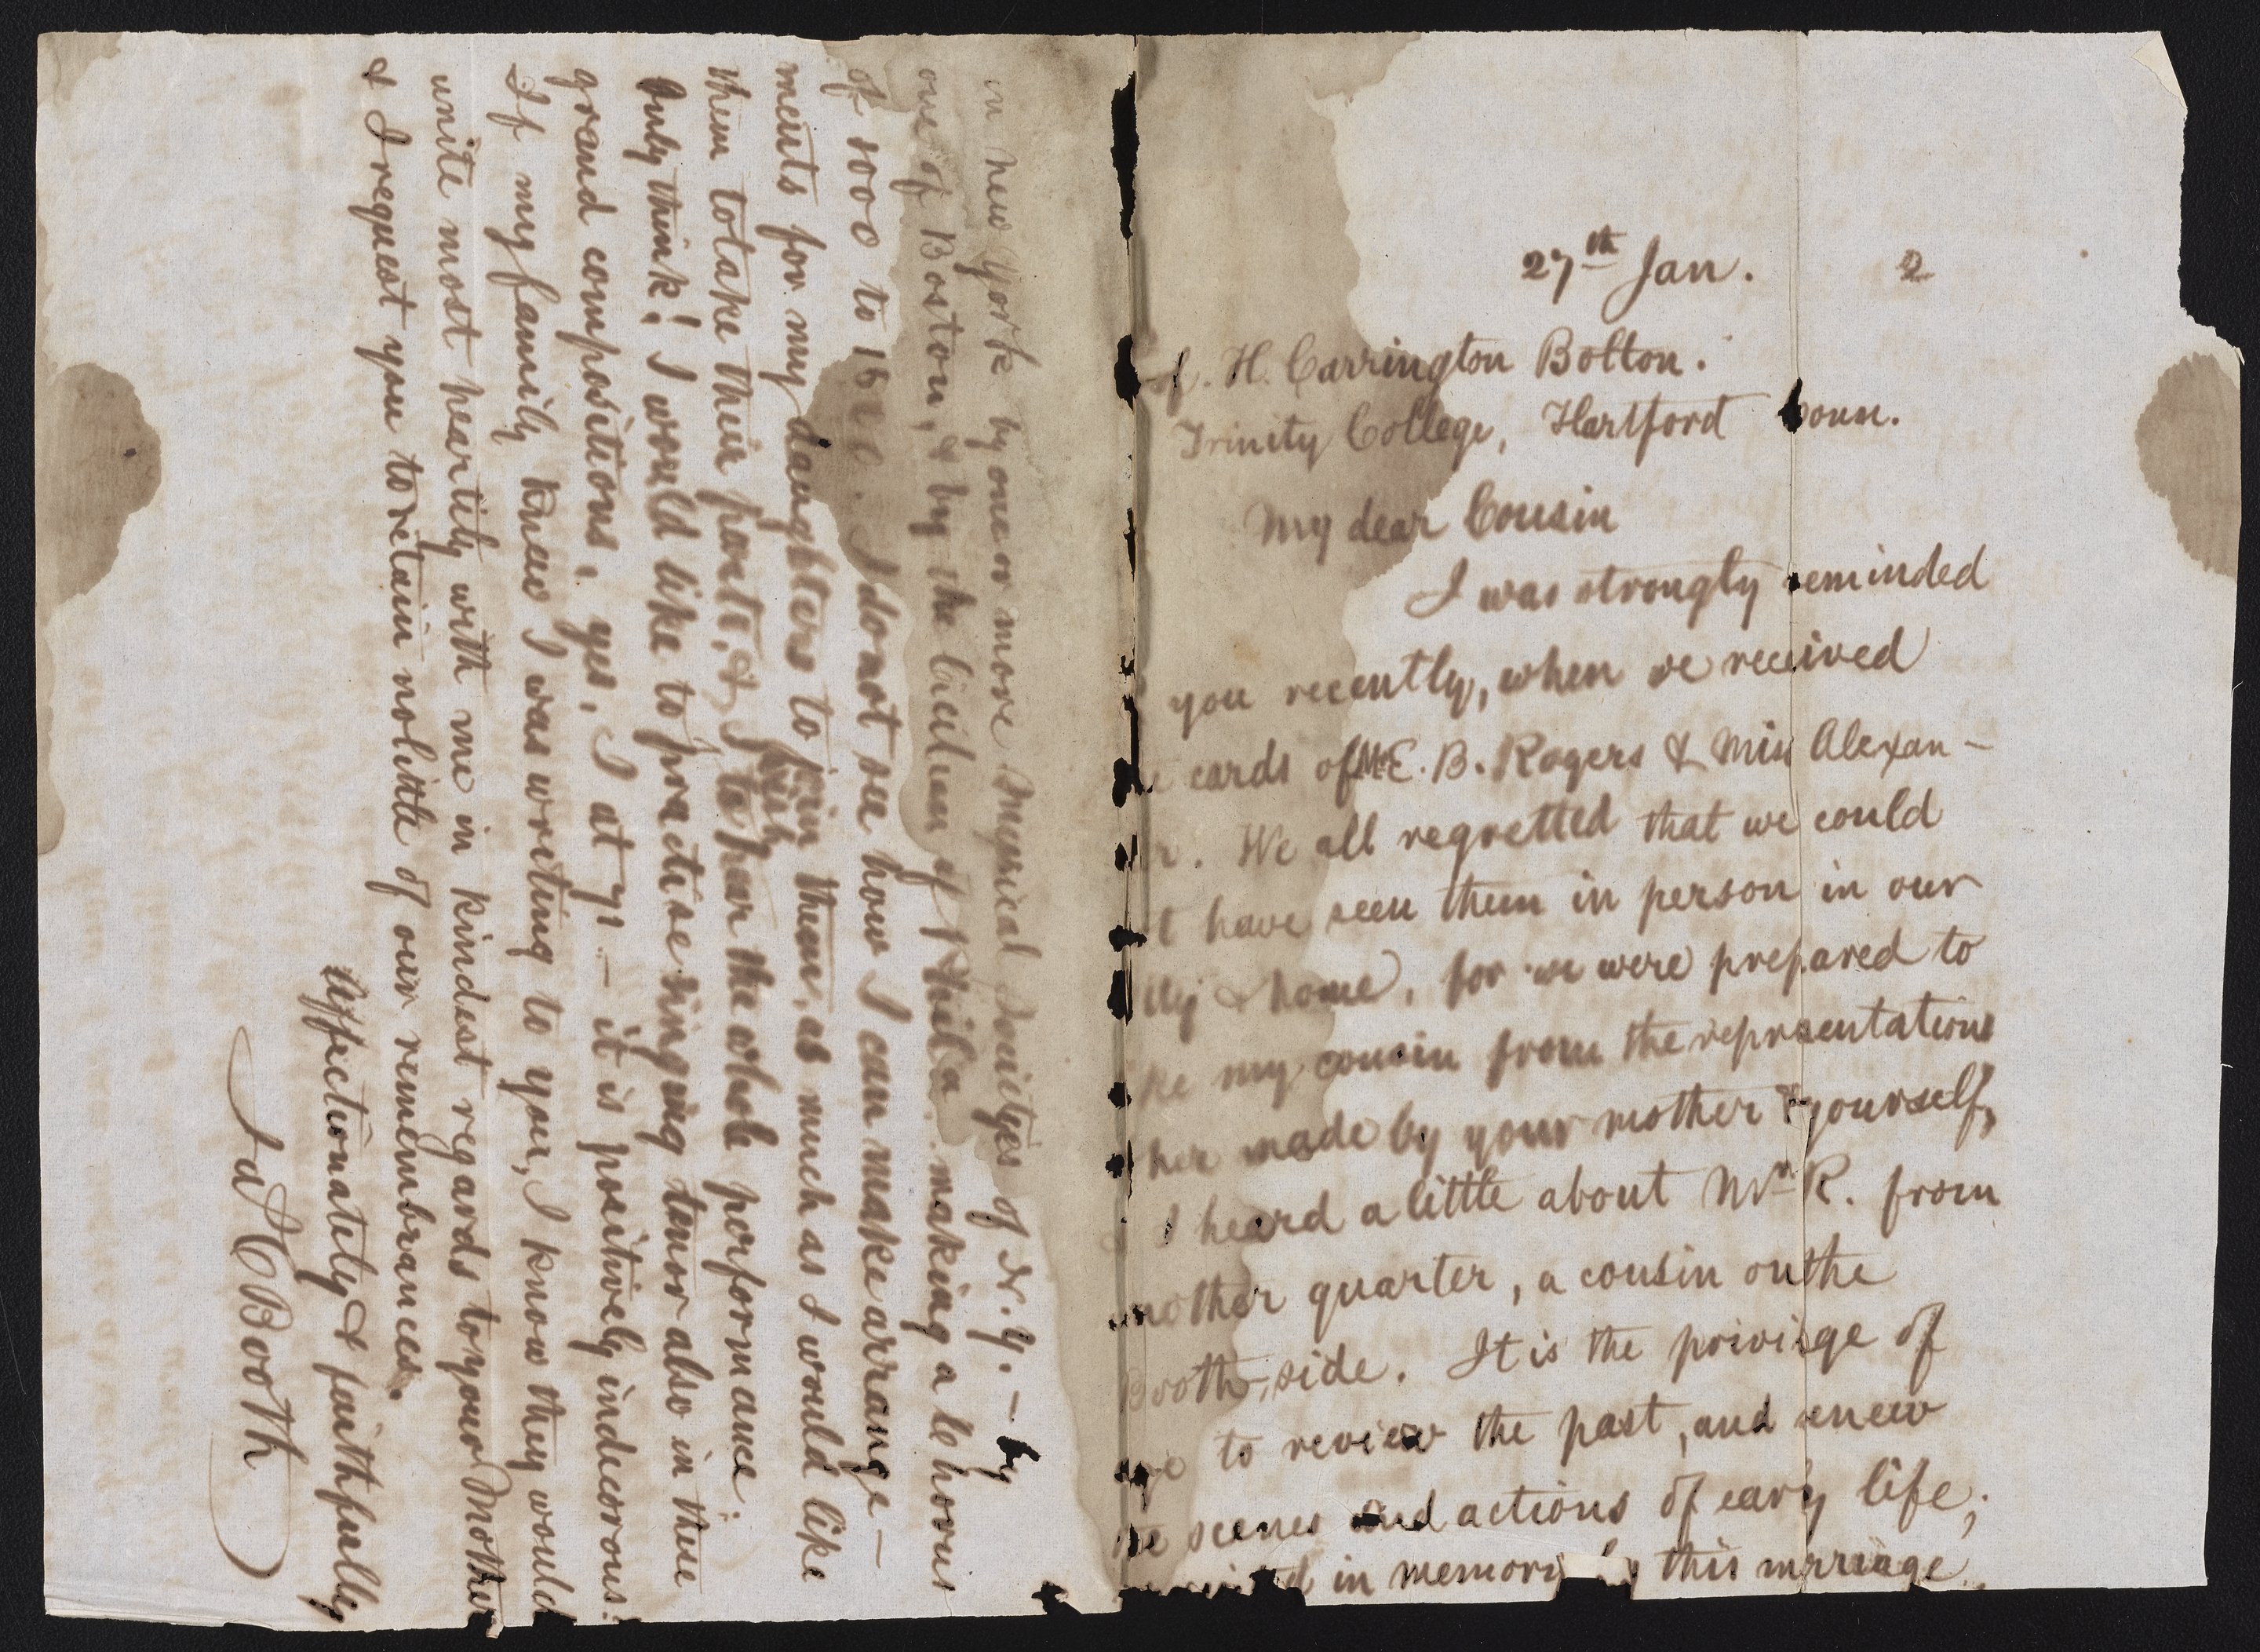 27th Jan. 2
f. H. Carrington Bolton.
Trinity College, Hartford Conn.
My dear Cousin
I was strongly reminded
you recently, when we received
cards of Mr E. B. Rogers & Miss Alexan-
r. We all regretted that we could
t have seen them in person in our
& home, for we were prepared to
ke my cousin from the representations
her made by your mother & yourself,
I heard a little about Mr R. from
nother quarter, a cousin on the
Booth side. It is the privilge of
age to review the past, and renew
he scenes and actions of early life;
in memory by this mrriage
in New York by one or more Musical Societyes of N. Y. – by
one of Boston, & by the Cicilian of Phila. making a chorus
of 1000 to 1500. I do not see how I can make arrange–
ments for my daughters to join them, as much as I would like
them to take their parts, & I wish to hear the whole performance.
Only think! I would like to practise singing tenor also in these
grand compositions, yes, I at 71 – it is positively indecorous!
If my family knew I was writing to you, I know they would
unite most heartily with me in kindest regards to your Mother
& I request you to retain no little of our remembrances.
Affectionately & faithfully
Ja C Booth